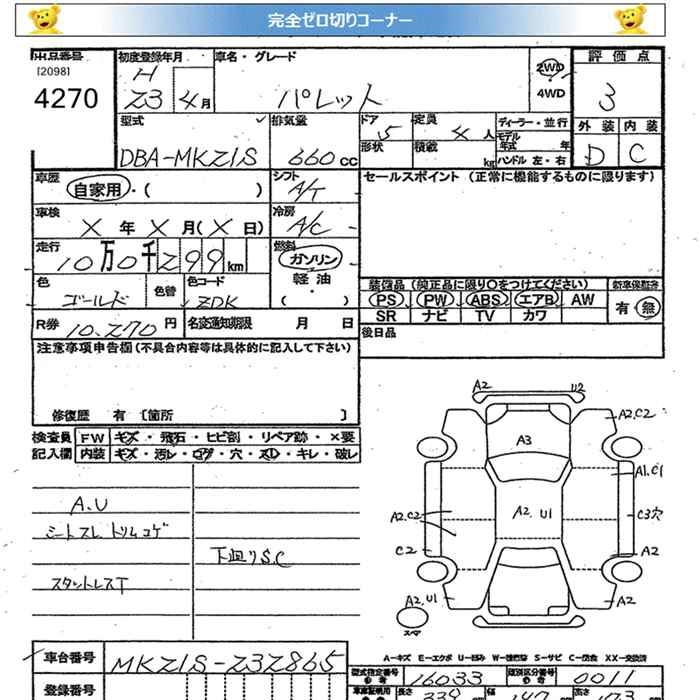 完全ゼロ切りコーナー
出品番号
[2098]
4270
初度登録年月
H
23 4月
車名・グレード
パレット
2WD
4WD
評価点
3
外装 内装
D C
型式
DBA-MKZ1S
排気量
660cc
ドア
5
形状
定員
4人
積載
kg
ディーラー・並行
モデル年式 年
ハンドル 左・右
車歴
自家用・( )
シフト
A/T
セールスポイント (正常に機能するものに限ります)
車検
X 年 X 月(X 日)
冷房
A/C
走行
10万0千299km
燃料
ガソリン
軽油
・( )
色
ゴールド
色替
色コード
ZDK
装備品 (純正品に限り○をつけてください)
PS PW ABS エアB AW
SR ナビ TV カワ
新車保証書
有・無
R券 10,270円
名変通知期限 月 日
後日品
注意事項申告欄(不具合内容等は具体的に記入して下さい)
修復歴 有 〔箇所 〕
検査員
記入欄
FW キズ・飛石・ヒビ割・リペア跡・×要
内装 キズ・汚レ・コゲ・穴・スレ・キレ・破レ
A.U
シートスレ トリムコゲ
下廻りS.C
スタットレスT
A2
U2
A2,C2
A3
A1,C1
A2,C2
A2,U1
C3穴
C2
A2
A2,U1
A2
スペア
A-キズ E-エクボ U-凹み W-補修跡 S-サビ C-腐食 XX-交換済
車台番号
MKZ1S-232865
型式指定番号
16033
類別区分番号
0011
登録番号
長さ
339
幅
147
高さ
173